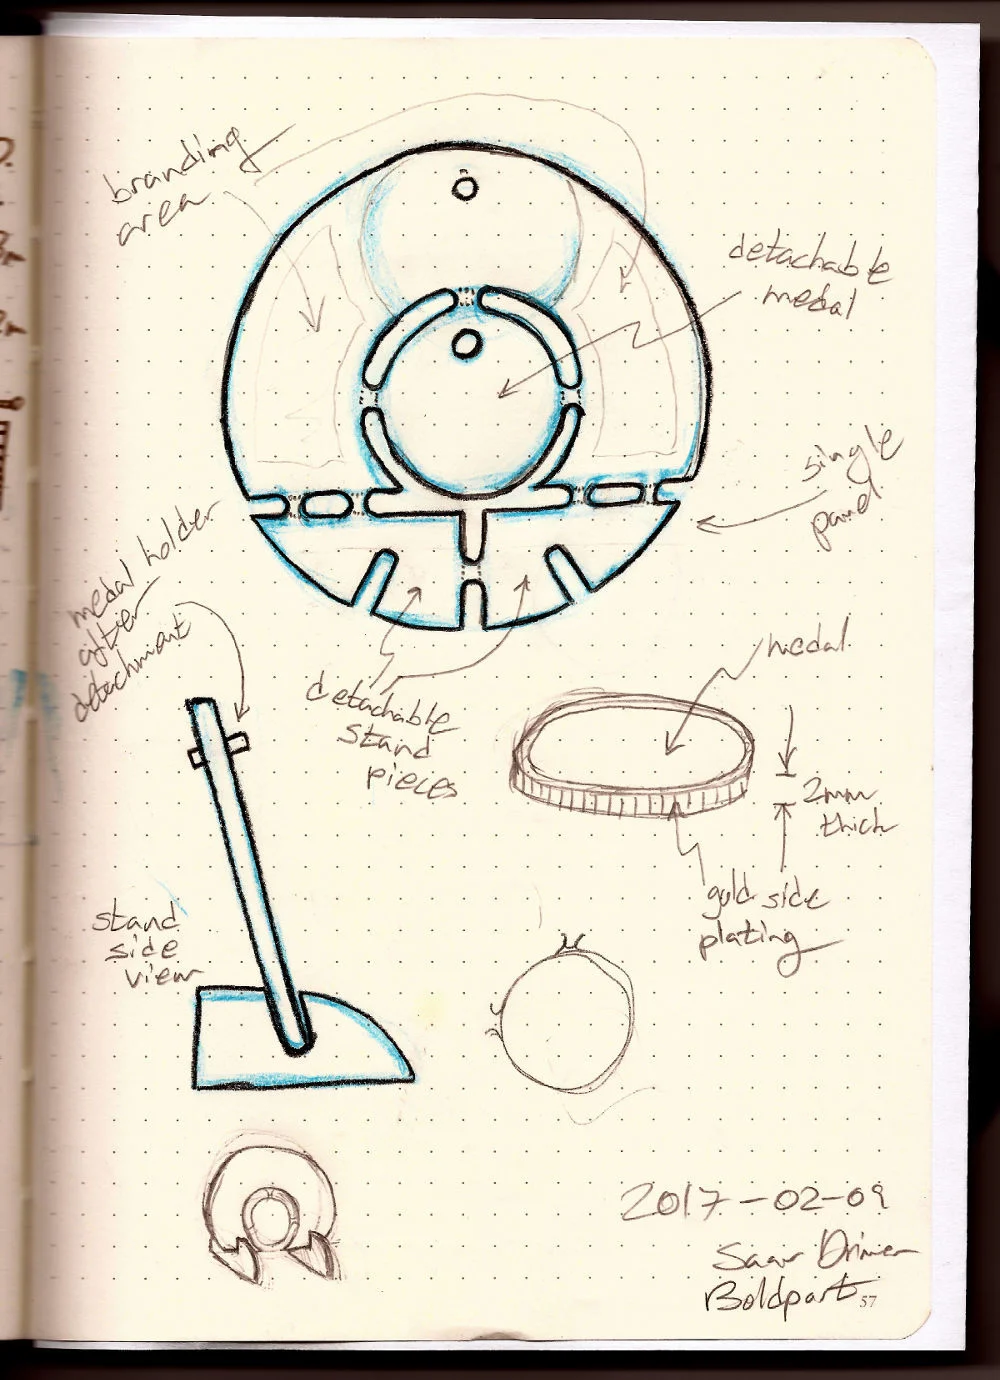 branding
area
detachable
medal
single
panel
medal holder
after
detachment
detachable
stand
pieces
medal
2mm
thick
gold side
plating
stand
side
view
2017-02-09
Saar Drimer
Boldport
57